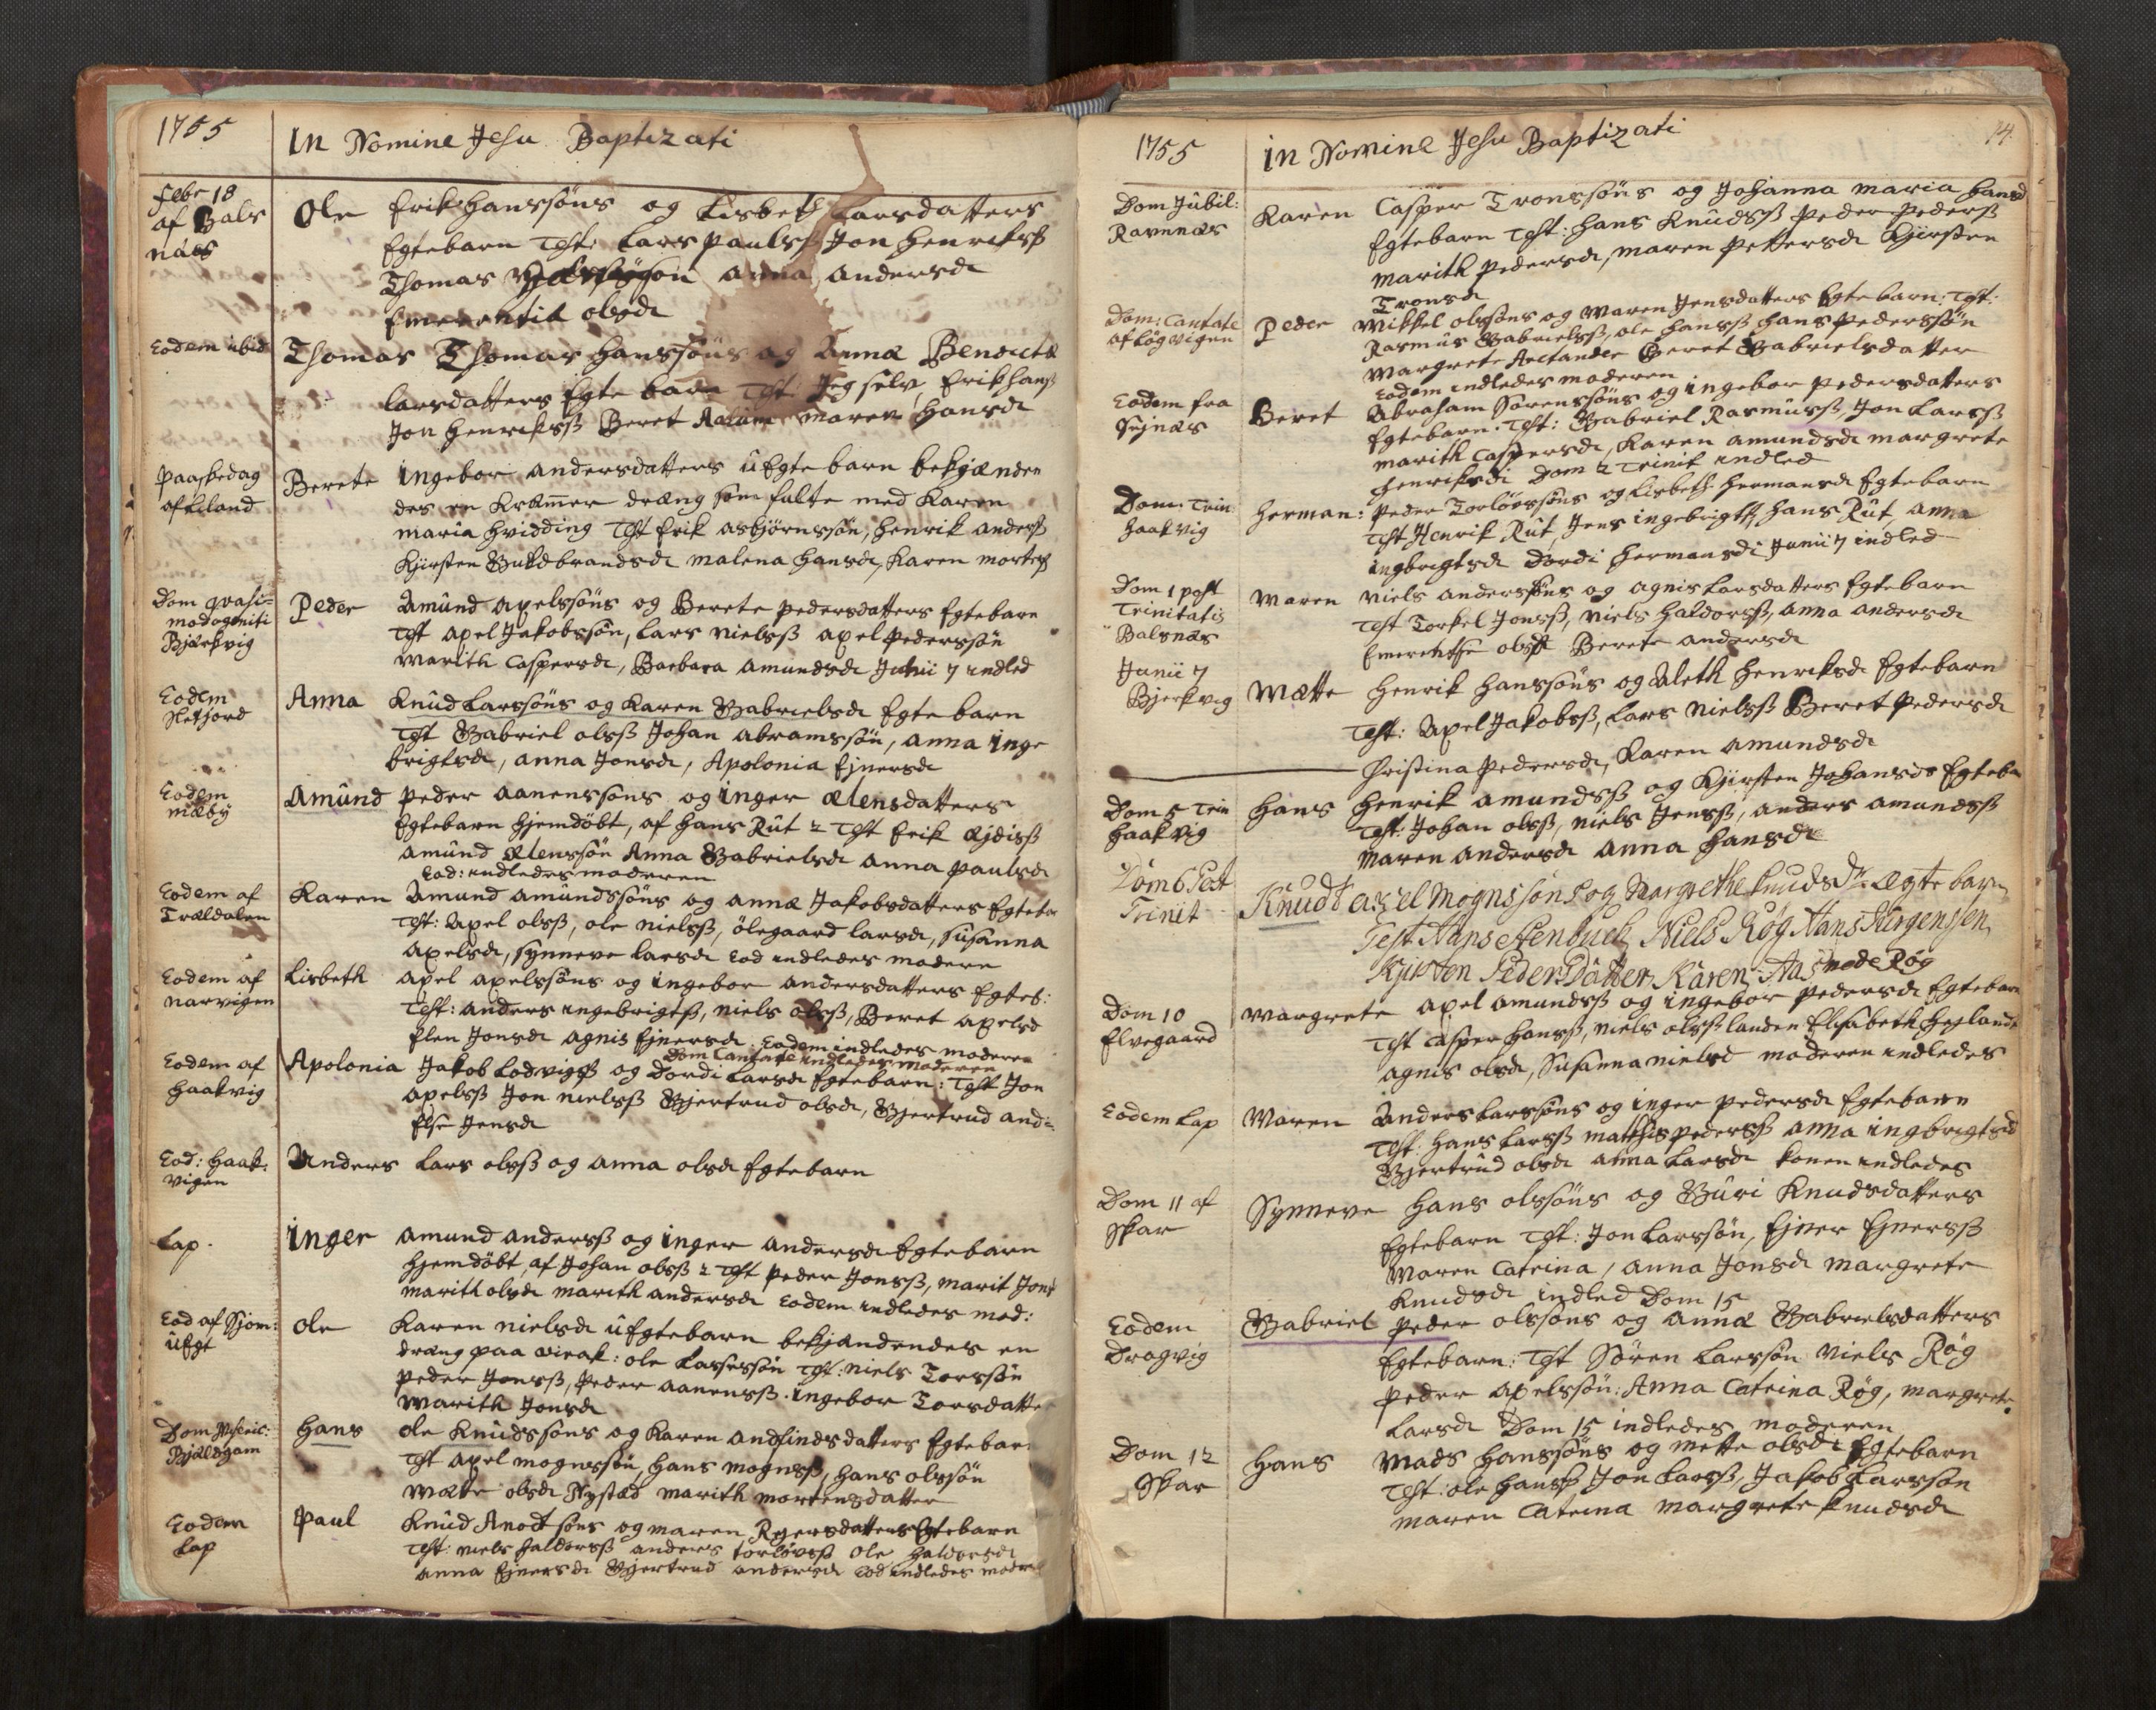 1755
In Nomine Jesu Baptizati
Febr 18
af Bals
näes
Ole
Erikhanssöns og Lisbeth Larsdatters
Egtebarn Test: Lars paulsß Jon henriksß
Thomas anna andersd
Emerentia olsd
Eodem ibid
Thomas
Thomas hanssöns og Anna Benducte
larsdatters Egte barn Test Jeg selv, Erik hansß
Jon henriksß Beret maren hansd
paaskedag
af Liland
Berete
ingebor andersdatters uEgte barn bekjænden
des en Kræmer dræng som fulte med Karen
maria hvidding Test Erik asbjørnssøn, henrik andersß
Kjirsten Guldbrandsd malena hansd, Karen mortesß
Dom qvasi-
modogeniti
Bjerkvig
Peder
Amund axelssöns og Berete pedersdatters Egtebarn
Test axel Jakobssön, Lars nielsß axel pederssön
marith Caspersd, Barbara amundsd Junii 7 indled
Eodem
Anna
Knud Larssöns og Karen Gabrielsd Egte barn
Test Gabriel olsß Johan abramssön, anna inge
brigtsd, anna Jonsd, Apolonia Ejnersd
Eodem
næby
Amund
peder aanenssöns og inger Elensdatters
Egtebarn hjemdöbt, af hans Rut 2 Test Erik
amund Elenssön Anna Gabrielsd anna paulsd
Eod: indledes moderen
Eodem af
Trældalen
Karen
Amund amundssöns og anna Jakobsdatters Egteba
Test: axel olsß, ole nielsß, ölegaard larsd, susanna
axelsd, synneve larsd Eod indledes modern
Eodem af
narvigen
Lisbeth
axel axelssöns og ingebor andersdatters Egteb:
Test: anders ingebrigtsß, niels olsß, Beret axelsd
Elen Jonsd agnis Ejnersd. Eodem indledes moderen
Dom Cantate indledes moderen
Eodem af
haakvig
Apolonia
Jakob Lodvigsß og Dordi Larsd Egtebarn: Test Jon
axelsß Jon nielsß Gjertrud olsd, Gjertrud and
Else Jensd
Eod: haak-
vigen
Anders
Lars olsß og anna olsd Egtebarn
Lap.
inger
amund andersß og inger andersd Egtebarn
hjemdöbt, af Johan olsß 2 Test peder Jonsß, marit Jons
marith olsd marith andersd Eodem indledes mod:
Eod af Sjom:
uEgt
Ole
Karen nielsd uEgtebarn bekjændendes en
dræng paa ole Lassesøn Test: niels Torssön
peder Jonsß, peder aanensß. ingebor Torsdatte
marith Jonsd
Dom Miseric:
Hans
Ole Knudssöns og Karen andfindsdatters Egtebar
Test axel mognssön, hans mognsß, hans olssön
mette olsd Nystad marith mortensdatter
Eodem
Lap
Paul
Knud söns og maren Egtebarn
Test: niels haldorsß anders torlöfsß Ole haldorsd
anna Ejnersd Gjertrud andersd Eod indledes moder
1755
in Nomine Jesu Baptizati
14.
Dom Jubil:
Ravnnæs
Karen
Casper Tronssöns og Johanna maria hansd
Egtebarn Test: hans Knudsß peder pedersß
marith pedersd, maren pettersd Kjirsten
Tronsd
Dom: Cantate
af Løgvigen
Peder
Mikkel olssöns og maren Jensdatters Egte barn: Test:
Rasmus Gabrielsß, ole hansß hans pederssön
margrete Arctander Beret Gabrielsdatter
Eodem indledes moderen
Eodem fra
Beret
Abraham Sörenssöns og ingebor pedersdatters
Egtebarn. Test: Gabriel Rasmusß, Jon Larsß
marith Caspersd, Karen amundsd margrete
henriksd Dom 2 Trinit indled
Dom: Trin
haakvig
Herman:
peder Torlöfssöns og Lisbeth hermansd Egtebarn
Test Henrik Rut, Jens ingebrigts, hans Rut, anna
ingbrigtsd Dordi hermansd Junii 7 indled
Dom 1 post
Trinitatis
Balsnæs
Maren
niels anderssöns og agnis Larsdatters Egtebarn
Test Torkel Jonsß, niels haldorsß, anna andersd
Emerenthe olsd Berete andersd
Junii 7
Bjerkvig
Mætte
Henrik hanssöns og Aleth henriksd Egtebarn
Test: axel Jakobsß, Lars nielsß Beret pedersd
Christina pedersd, Karen amundsd
Dom 5 Trin
haakvig
Hans
Henrik amundsß og Kjirsten Johansds Egteba
Test: Johan olsß, niels Jensß, anders amundsß
maren andersd anna hansd
Dom 6 Post
Trinit
Knudt
axel Mognssöns og Margrethe Knudsdr. Ægte barn
Test Hans Stenbuck, Niels Røg Hans Jürgensen,
Kjirsten Peders Datter, Karen Røg
Dom 10
Elvegaard
Margrete
axel amundsß og ingebor pedersd Egtebarn
Test Casper hansß, niels olsß landen Elisabeth hejland
agnis olsd, susanna nielsd moderen indledes
Eodem Lap
Maren
Anders Larssöns og inger pedersd Egtebarn
Test: hans Larsß mathis pedersß anna ingbrigtsd
Gjertrud olsd anna Larsd konen indledes
Dom 11 af
Skar
Synneve
Hans olssöns og Guri Knudsdatters
Egtebarn Test: Jon Larssön, Ejner Ejnersß
Maren Catrina, anna Jonsd margrete
Knudsd indled Dom 15
Eodem
Dragvig
Gabriel
peder olssöns og anna Gabrielsdatters
Egtebarn: Test Sören Larssön Niels Røg
peder axelssön: Anna Catrina Røg, margrete
Larsd Dom 15 indledes moderen
Dom 12
Skar
Hans
Mads hanssöns og mette olsd Egtebarn
Test: ole hansß Jon Larsß, Jakob Larssön
maren Catrina margrete Knudsd